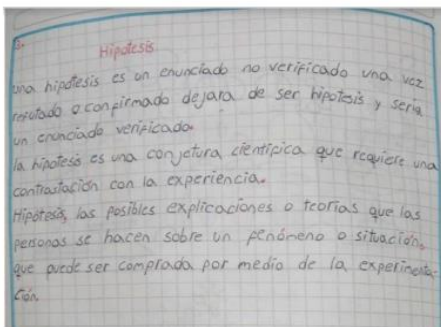 3.
Hipotesis
una hipotesis es un enunciado no verificado una vez
refutado o confirmado dejara de ser hipotesis y seria
un enunciado verificado.
la hipotesis es una conjetura cientifica que requiere una
contrastación con la experiencia.
Hipótesis, las posibles explicaciones o teorias que las
personas se hacen sobre un fenómeno o situación,
que puede ser comprada por medio de la experimenta-
ción.